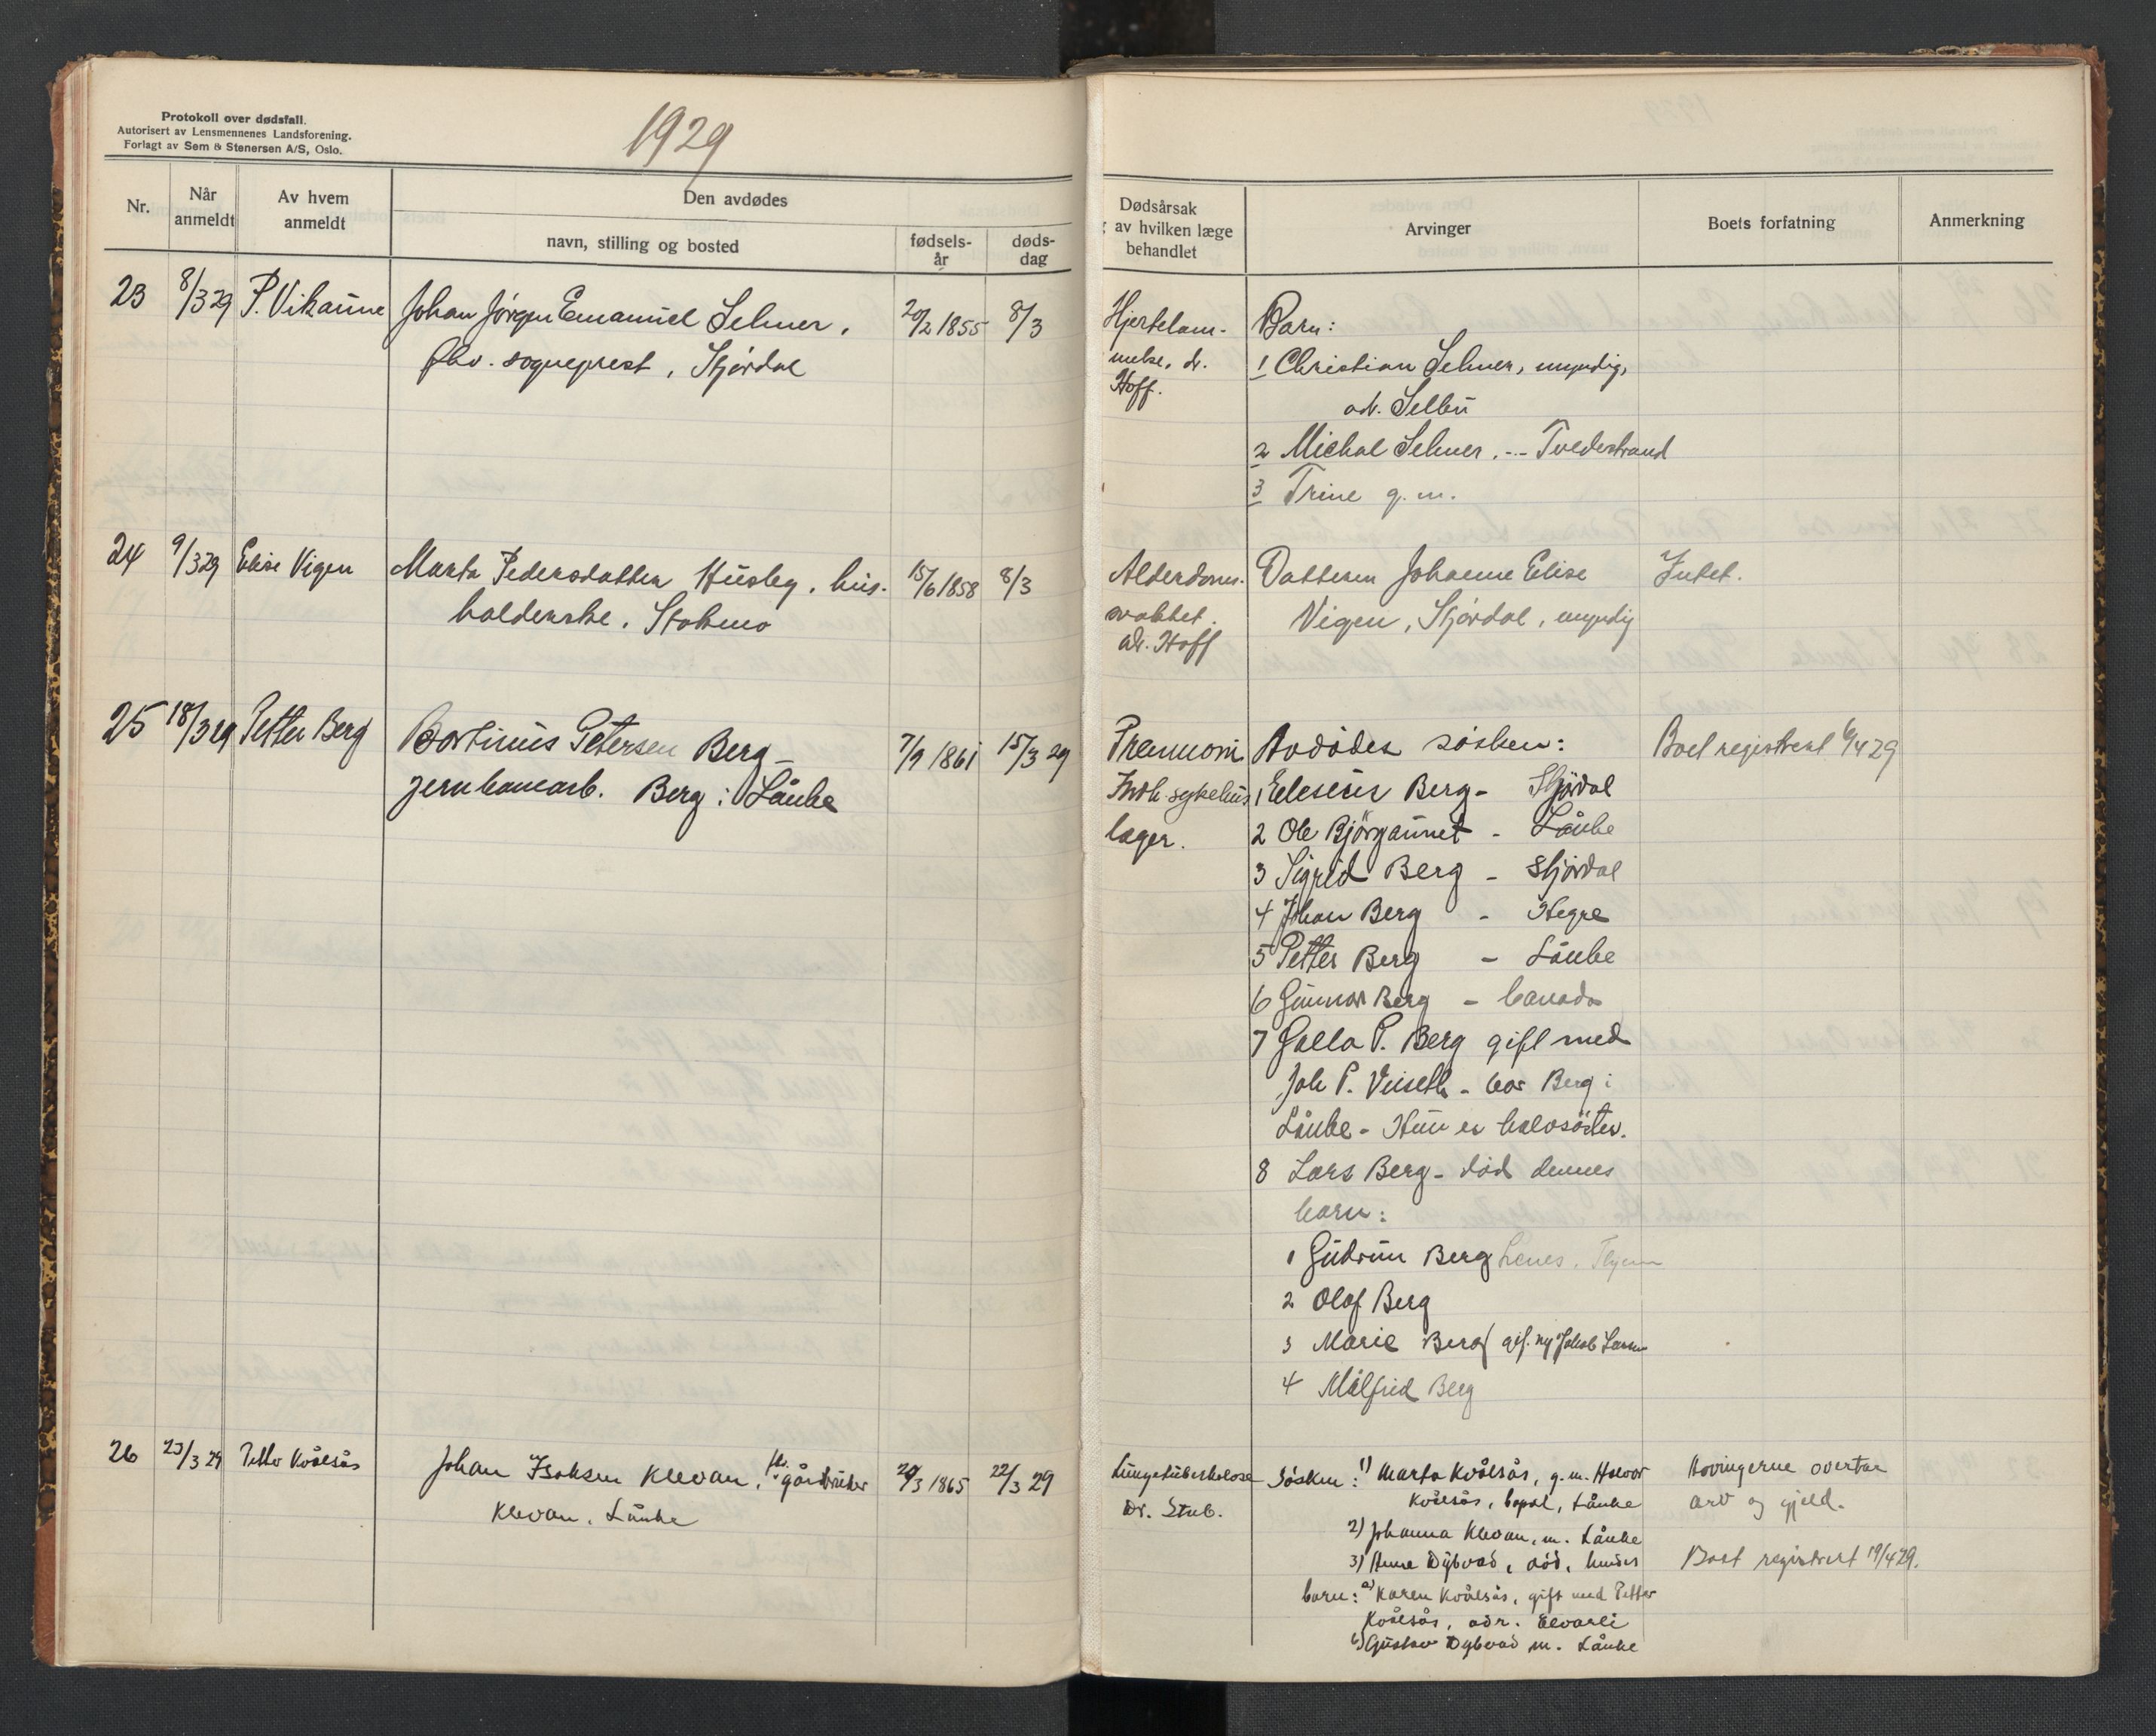 Protokoll over dødsfall.
Autorisert av Lensmennenes Landsforening.
Forlagt av Sem & Stenersen A/S, Oslo.
1929
Nr.
Når anmeldt
Av hvem anmeldt
Den avdødes
navn, stilling og bosted
fødsels-år
døds-dag
Dødsårsak
av hvilken læge
behandlet
Arvinger
Boets forfatning
Anmerkning
23 8/3 29 P. Vikaune Johan Jörgen Emanuel Selmer, 20/2 1855 8/3
fhv. sogneprest, Stjördal
Hjertelam-
melse, dr.
Hoff.
Barn:
1 Christian Selmer, myndig,
adr. Selbu
2 Michal Selmer, -- Tvedestrand
3 Trine g. m.
24 9/3 29 Elise Vigen Marta Pedersdatter Husby, hus- 15/6 1858 8/3
holderske, Stokmo
Alderdoms-
svakhet.
dr. Hoff
Datteren Johanne Elise
Vigen, Stjördal, myndig
Intet.
25 18/3 29 Petter Berg Bortinus Petersen Berg - 7/9 1861 15/3 29
jernbanearb. Berg i Lånke
Pneumoni
Innh. sykehus
læger.
Avdödes sösken:
1 Eleseus Berg - Stjördal
2 Ole Björgaunet - Lånke
3 Sigrid Berg - Stjördal
4 Johan Berg - Hegre
5 Petter Berg - Lånke
6 Gunnar Berg - Canada
7 Golla P. Berg gift med
Joh P. Viiseth - bor Berg i
Lånke - Hun er halvsöster.
8 Lars Berg - död dennes
barn:
1 Gudrun Berg Lenes,
2 Olaf Berg
3 Marie Berg gif. m/ Jakob Larsen
4 Målfrid Berg
Boet registrert 6/4 29
26 23/3 29 Petter Kvålsås Johan Isaksen Klevan, fh. gårdbruker 20/3 1865 22/3 29
Klevan, Lånke
Lungetuberkolose
Dr. Stub.
Sösken: 1) Marta Kvålsås, g. m. Halvor
Kvålsås, bopel, Lånke
2) Johanna Klevan, m. Lånke
3) Anne Dybvad, död, hendes
barn: a) Karen Kvålsås, gift med Petter
Kvålsås, adr. Elvarli
b) Gustav Dybvad m. Lånke
Arvingerne overtar
arv og gjeld.
Boet registrert 19/4 29.